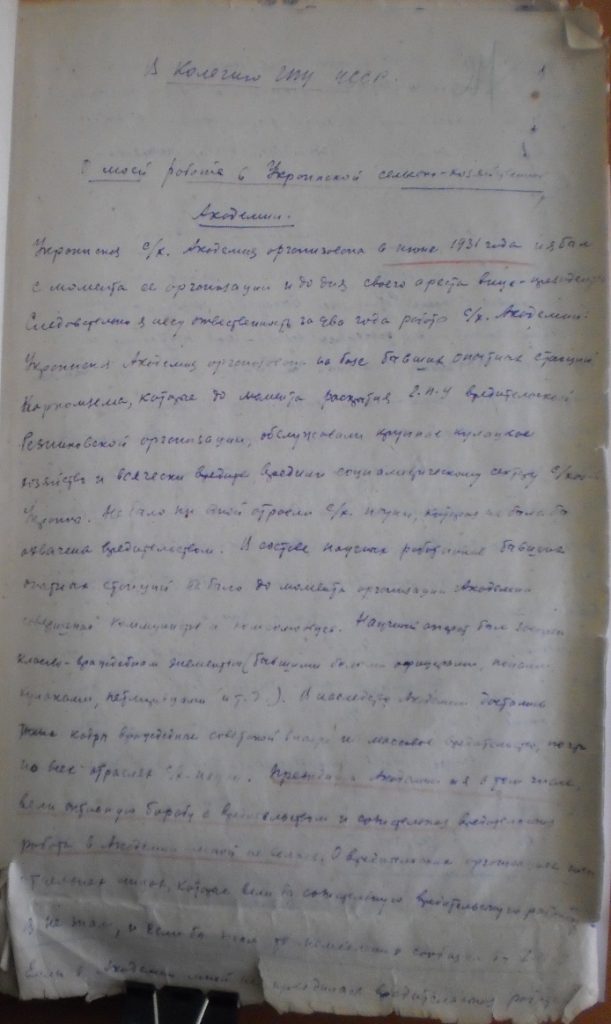 В Колегию ГПУ УССР.
О моей работе в Украинской сельско-хозяйственной
Академии.
Украинская с/х. Академия организована в июне 1931 года и я был
с момента ее организации и до дня своего ареста вице-президентом
Следовательно я несу ответственность за два года работы с/х. Академии.
Украинская Академия организована на базе бывших опытных станций
Наркомзема, которые до момента раскрытия Г.П.У вредительской
Резниковской организации, обслуживали крупное кулацкое
хозяйство и всячески вредили социалистическому сектору с/хоз-ва
Украины. Не было ни одной отрасли с/х. науки, которая не была бы
охвачена вредительством. В составе научных работников бывших
опытных станций не было до момента организации Академии
коммунистов и комсомольцев. Научный аппарат был засорен
классово-враждебным элементом (бывшими белыми офицерами, попами
кулаками, петлюровцами и т.д.). В наследство Академии достались
такие кадры враждебные советской власти и массовое вредительство, почти
по всех отраслях с/х. науки. Президиум Академии и я в том числе,
вели активную борьбу с вредительством и сознательная вредительская
работа в Академии мной не велась. О вредительских организациях
которые вели бы сознательную вредительскую работу
я не знал, и если бы знал то немедленно сообщил бы
Если в Академии мной не проводилась вредительская работа